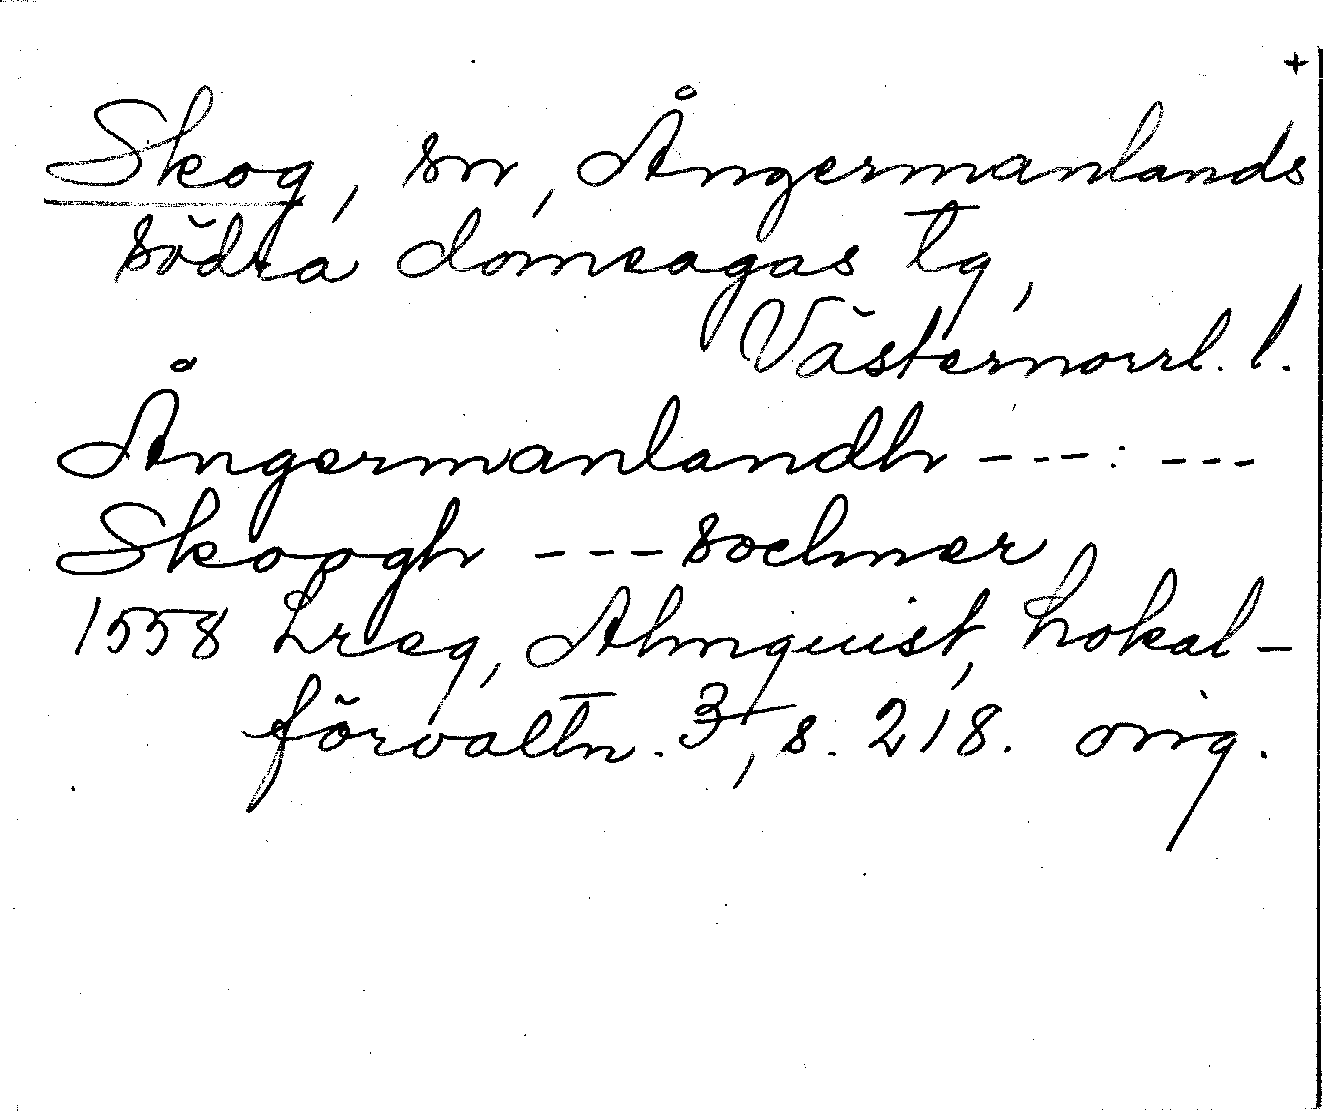 +
Skog, sn, Ångermanlands
södra domsagas tg,
Västernorrl. l.
Ångermanlandh ---:---
Skoogh --- sochner
1558 Lreg, Almquist, Lokal-
förvaltn. 3, s. 218. orig.